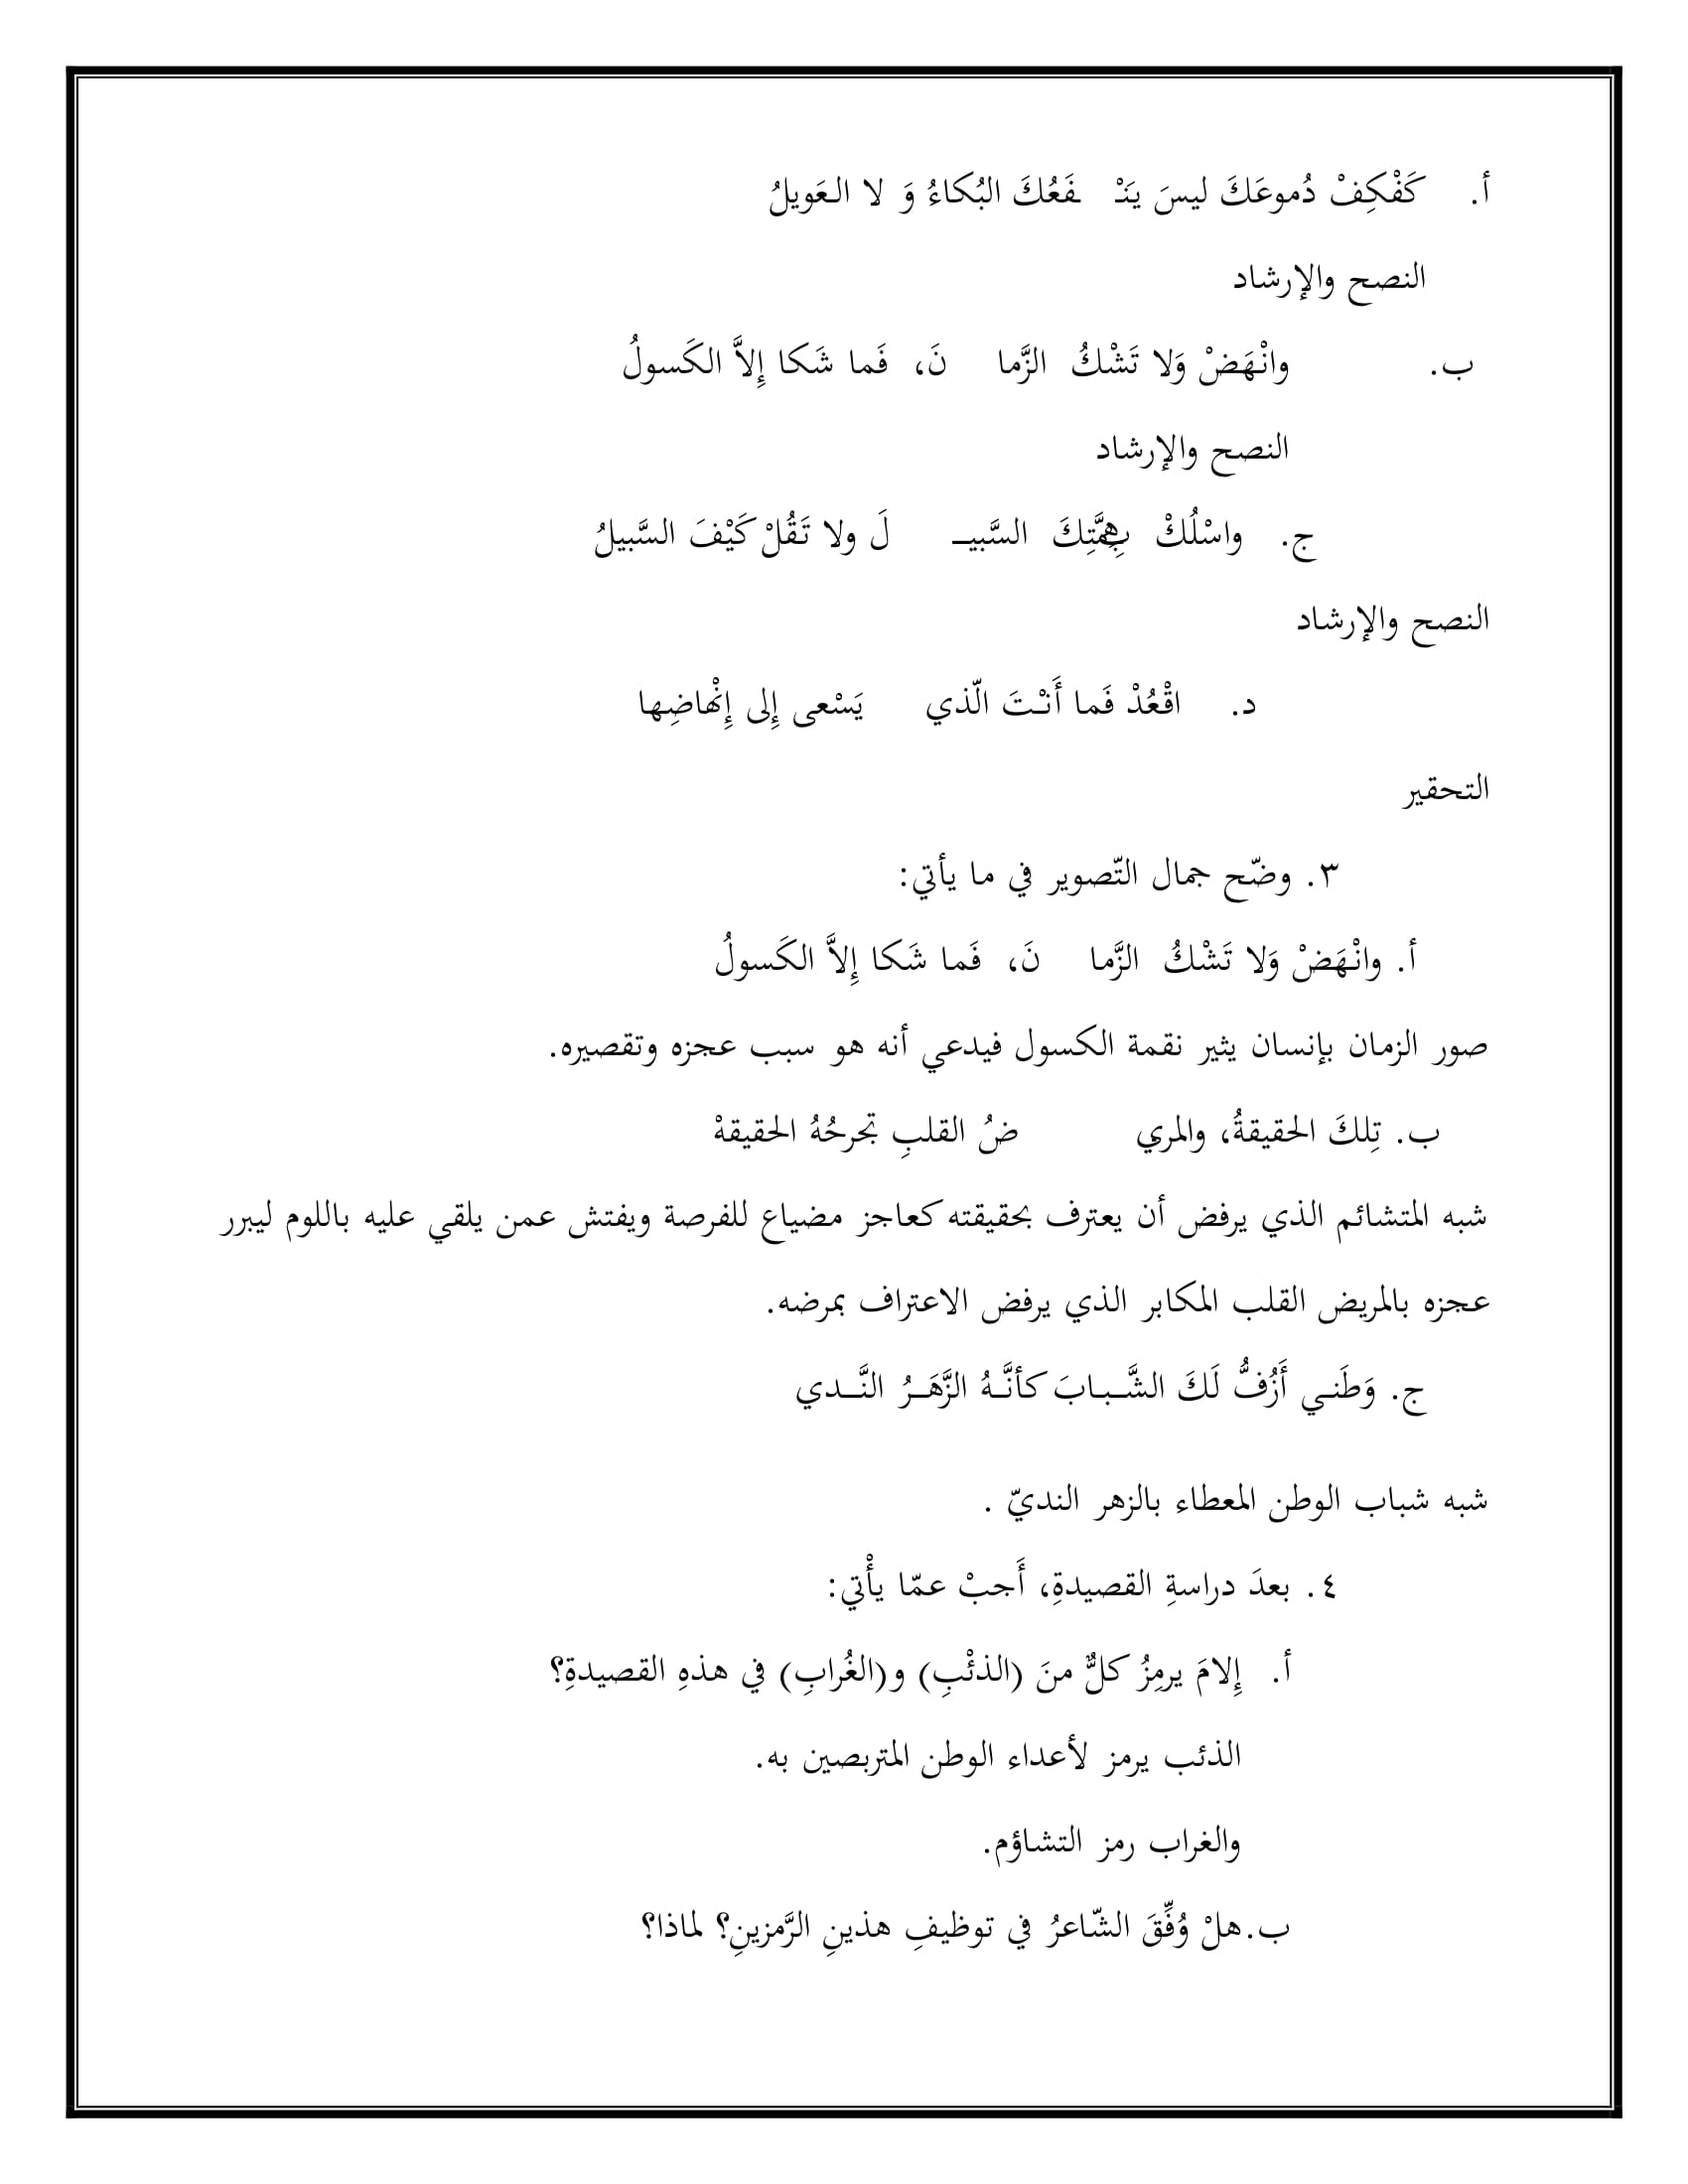 أ. كَفْكِفْ دُموعَكَ ليسَ يَنْـ ـفَعُكَ البُكاءُ وَ لا العَويلُ
النصح والإرشاد
ب. وانْهَضْ وَلا تَشْكُ الزَّما نَ، فَما شَكا إِلاَّ الكَسولُ
النصح والإرشاد
ج. واسْلُكْ بِهِمَّتِكَ السَّبيــ لَ ولا تَقُلْ كَيْفَ السَّبيلُ
النصح والإرشاد
د. اقْعُدْ فَما أَنْـتَ الّذي يَسْعى إِلى إِنْهاضِها
التحقير
٣. وضّح جمال التّصوير في ما يأتي:
أ. وانْهَضْ وَلا تَشْكُ الزَّما نَ، فَما شَكا إِلاَّ الكَسولُ
صور الزمان بإنسان يثير نقمة الكسول فيدعي أنه هو سبب عجزه وتقصيره.
ب. تِلكَ الحقيقةُ، والمري ضُ القلبِ تجرحُهُ الحقيقهْ
شبه المتشائم الذي يرفض أن يعترف بحقيقته كعاجز مضياع للفرصة ويفتش عمن يلقي عليه باللوم ليبرر
عجزه بالمريض القلب المكابر الذي يرفض الاعتراف بمرضه.
ج. وَطَنـي أَزُفُّ لَكَ الشَّـبـابَ كأنَّـهُ الزَّهَـرُ النَّــدي
شبه شباب الوطن المعطاء بالزهر النديّ .
٤. بعدَ دراسةِ القصيدةِ، أَجبْ عمّا يأْتي:
أ. إِلامَ يرمِزُ كلٌّ منَ (الذئْبِ) و(الغُرابِ) في هذهِ القصيدةِ؟
الذئب يرمز لأعداء الوطن المتربصين به.
والغراب رمز التشاؤم.
ب.هلْ وُفِّقَ الشّاعرُ في توظيفِ هذينِ الرَّمزينِ؟ لماذا؟